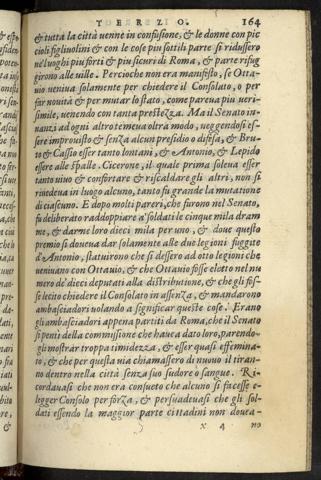 TERZO. 164
& tutta la città venne in confusione, & le donne con pic
cioli figliuolini & con le cose piu sottili parte si ridussero
ne'luoghi piu forti & piu sicuri di Roma, & parte rifug
girono alle ville. Percioche non era manifesto, se Otta-
uio veniua solamente per chiedere il Consolato, o per
far nouità & per mutar lo stato, come pareua piu ueri-
simile, uenendo con tanta prestezza. Ma il Senato in-
nanzi ad ogni altro temeua oltra modo, ueggendosi es-
sere improuisto & senza alcun presidio o difesa, & Bru-
to & Cassio esser tanto lontani, & Antonio, & Lepido
essere alle spalle. Cicerone, il quale prima soleua esser
tanto uiuo & confortare & riscaldare gli altri, non si
riuedeua in luogo alcuno, tanto fu grande la mutatione
di ciascuno. E dopo molti pareri, che furono nel Senato,
fu deliberato raddoppiare a' soldati le cinque mila dram
me, & darne loro dieci mila per uno, & doue questo
premio si doueua dar solamente alle due legioni fuggite
d'Antonio, statuirono che si dessero ad otto legioni che
ueniuano con Ottauio, & che Ottauio fosse eletto nel nu
mero de' dieci deputati alla distributione, & che gli fos-
se lecito chiedere il Consolato in assenza, & mandarono
ambasciadori uolando a significar queste cose. Erano
gli ambasciadori appena partiti da Roma, che il Senato
si penti della commissione che haueua dato loro, parendo-
gli mostrar troppa timidezza, & esser quasi effemina-
to, & che per questa via chiamassero di nuouo il tiran-
no dentro nella città senza suo sudore o sangue. Ri-
cordauasi che non era consueto che alcuno si facesse e-
legger Consolo per forza, & persuadeuasi che gli sol-
dati essendo la maggior parte cittadini non douea-
x 4 no